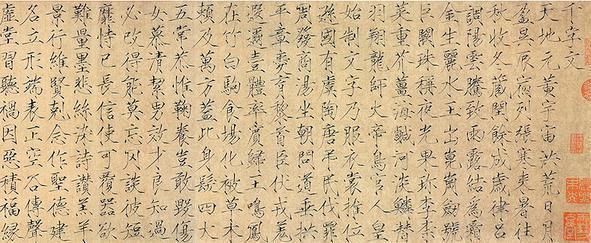 千字文
天地元黃宇宙洪荒日月
盈昃辰宿列張寒來暑往
秋收冬藏閏餘成歲律呂
調陽雲騰致雨露結為霜
金生麗水玉出崑崗劍號
巨闕珠稱夜光果珍李柰
菜重芥薑海鹹河淡鱗潛
羽翔龍師火帝鳥官人皇
始制文字乃服衣裳推位
遜國有虞陶唐弔民伐罪
周發商湯坐朝問道垂拱
平章愛育黎首臣伏戎羌
遐邇壹體率賓歸王鳴鳳
在竹白駒食場化被草木
賴及萬方蓋此身髮四大
五常恭惟鞠養豈敢毀傷
女慕清潔男效才良知過
必改得能莫忘罔談彼短
靡恃己長信使可覆器欲
難量墨悲絲染詩讚羔羊
景行維賢剋念作聖德建
名立形端表正空谷傳聲
虛堂習聽禍因惡積福緣